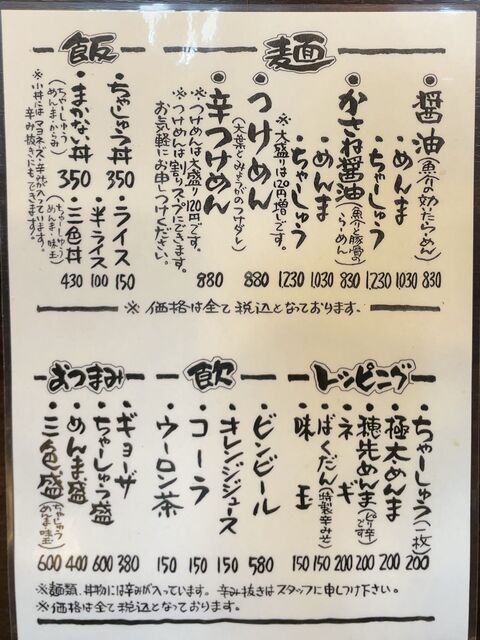 麺
・醤油(魚介の効いたらーめん) 830
・めんま 1030
・ちゃーしゅう 1230
・かさね醤油(魚介と豚骨のらーめん) 830
・めんま 1030
・ちゃーしゅう 1230
※大盛りは120円増しです。
・つけめん(大葉とみょうがのつけダレ) 880
・辛つけめん 880
※つけめんは大盛り120円です。
※つけめんは割りスープにできます。
お気軽にお申しつけください。
飯
・ちゃしゅう丼 350
・まかない丼 350
(ちゃーしゅうめんま・からみ)
・ライス 150
・半ライス 100
・三色丼 430
(ちゃーしゅうめんま・味玉)
※小丼にはマヨネーズ・辛みが入っています。
辛み抜きにもできます!
※価格は全て税込となっております。
トッピング
・ちゃーしゅう(一枚) 200
・極太めんま 200
・穂先めんま(ピリ辛です) 200
・ネギ 200
・ばくだん(特製辛みそ) 150
・味玉 150
飲
・ビンビール 580
・オレンジジュース 150
・コーラ 150
・ウーロン茶 150
おつまみ
・ギョーザ 380
・ちゃーしゅう盛 600
・めんま盛 400
・三色盛(ちゃーしゅうめんま・味玉) 600
※麺類、丼物には辛みが入っています。辛み抜きはスタッフに申しつけ下さい。
※価格は全て税込となっております。